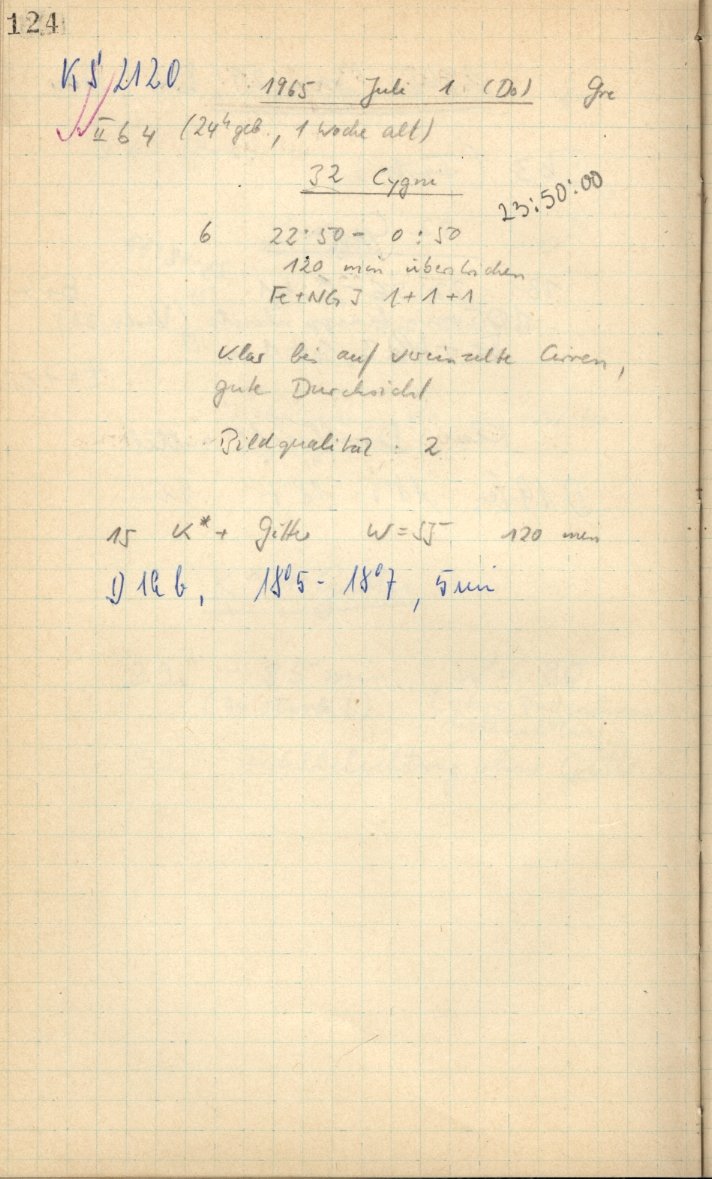 124
KŠ 2120
1965 Juli 1 (Do) Gre
II 64 (24h geb., 1 Woche alt)
32 Cygni
23:50:00
6 22:50 - 0:50
120 min überstrichen
Fe+NG3 1+1+1
Klar bis auf vereinzelte Cirren,
gute Durchsicht
Bildqualität: 2
15 K*+ Gitter W=55 120 min
D 19b, 18°5 - 18°7, 5 min